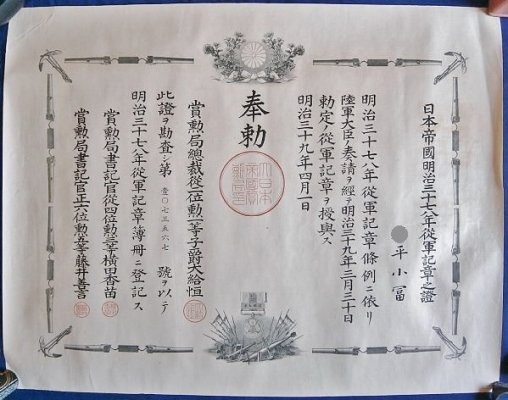 日本帝國明治三十七八年從軍記章之證
平小冨
明治三十七八年從軍記章條例ニ依リ
陸軍大臣ノ奏請ヲ經テ明治三十九年三月三十日
勅定ノ從軍記章ヲ授與ス
明治三十九年四月一日
奉勅
賞勲局總裁從二位勲一等子爵大給恒
此證ヲ勘査シ第壹〇七三五六七號ヲ以テ
明治三十七八年從軍記章簿冊ニ登記ス
賞勲局書記官從四位勲三等横田香苗
賞勲局書記官正六位勲五等藤井善言